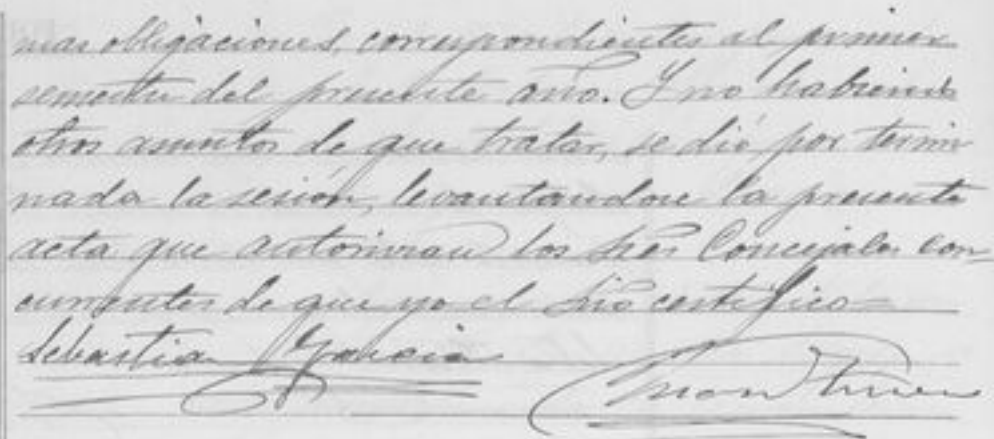 mas obligaciones, correspondientes al primer
semestre del presente año. Y no habiendo
otros asuntos de que tratar, se dió por termi
nada la sesión, levantandose la presente
acta que autorizan los Sres Concejales con-
currentes de que yo el Srio certifico=
Sebastian Garcia